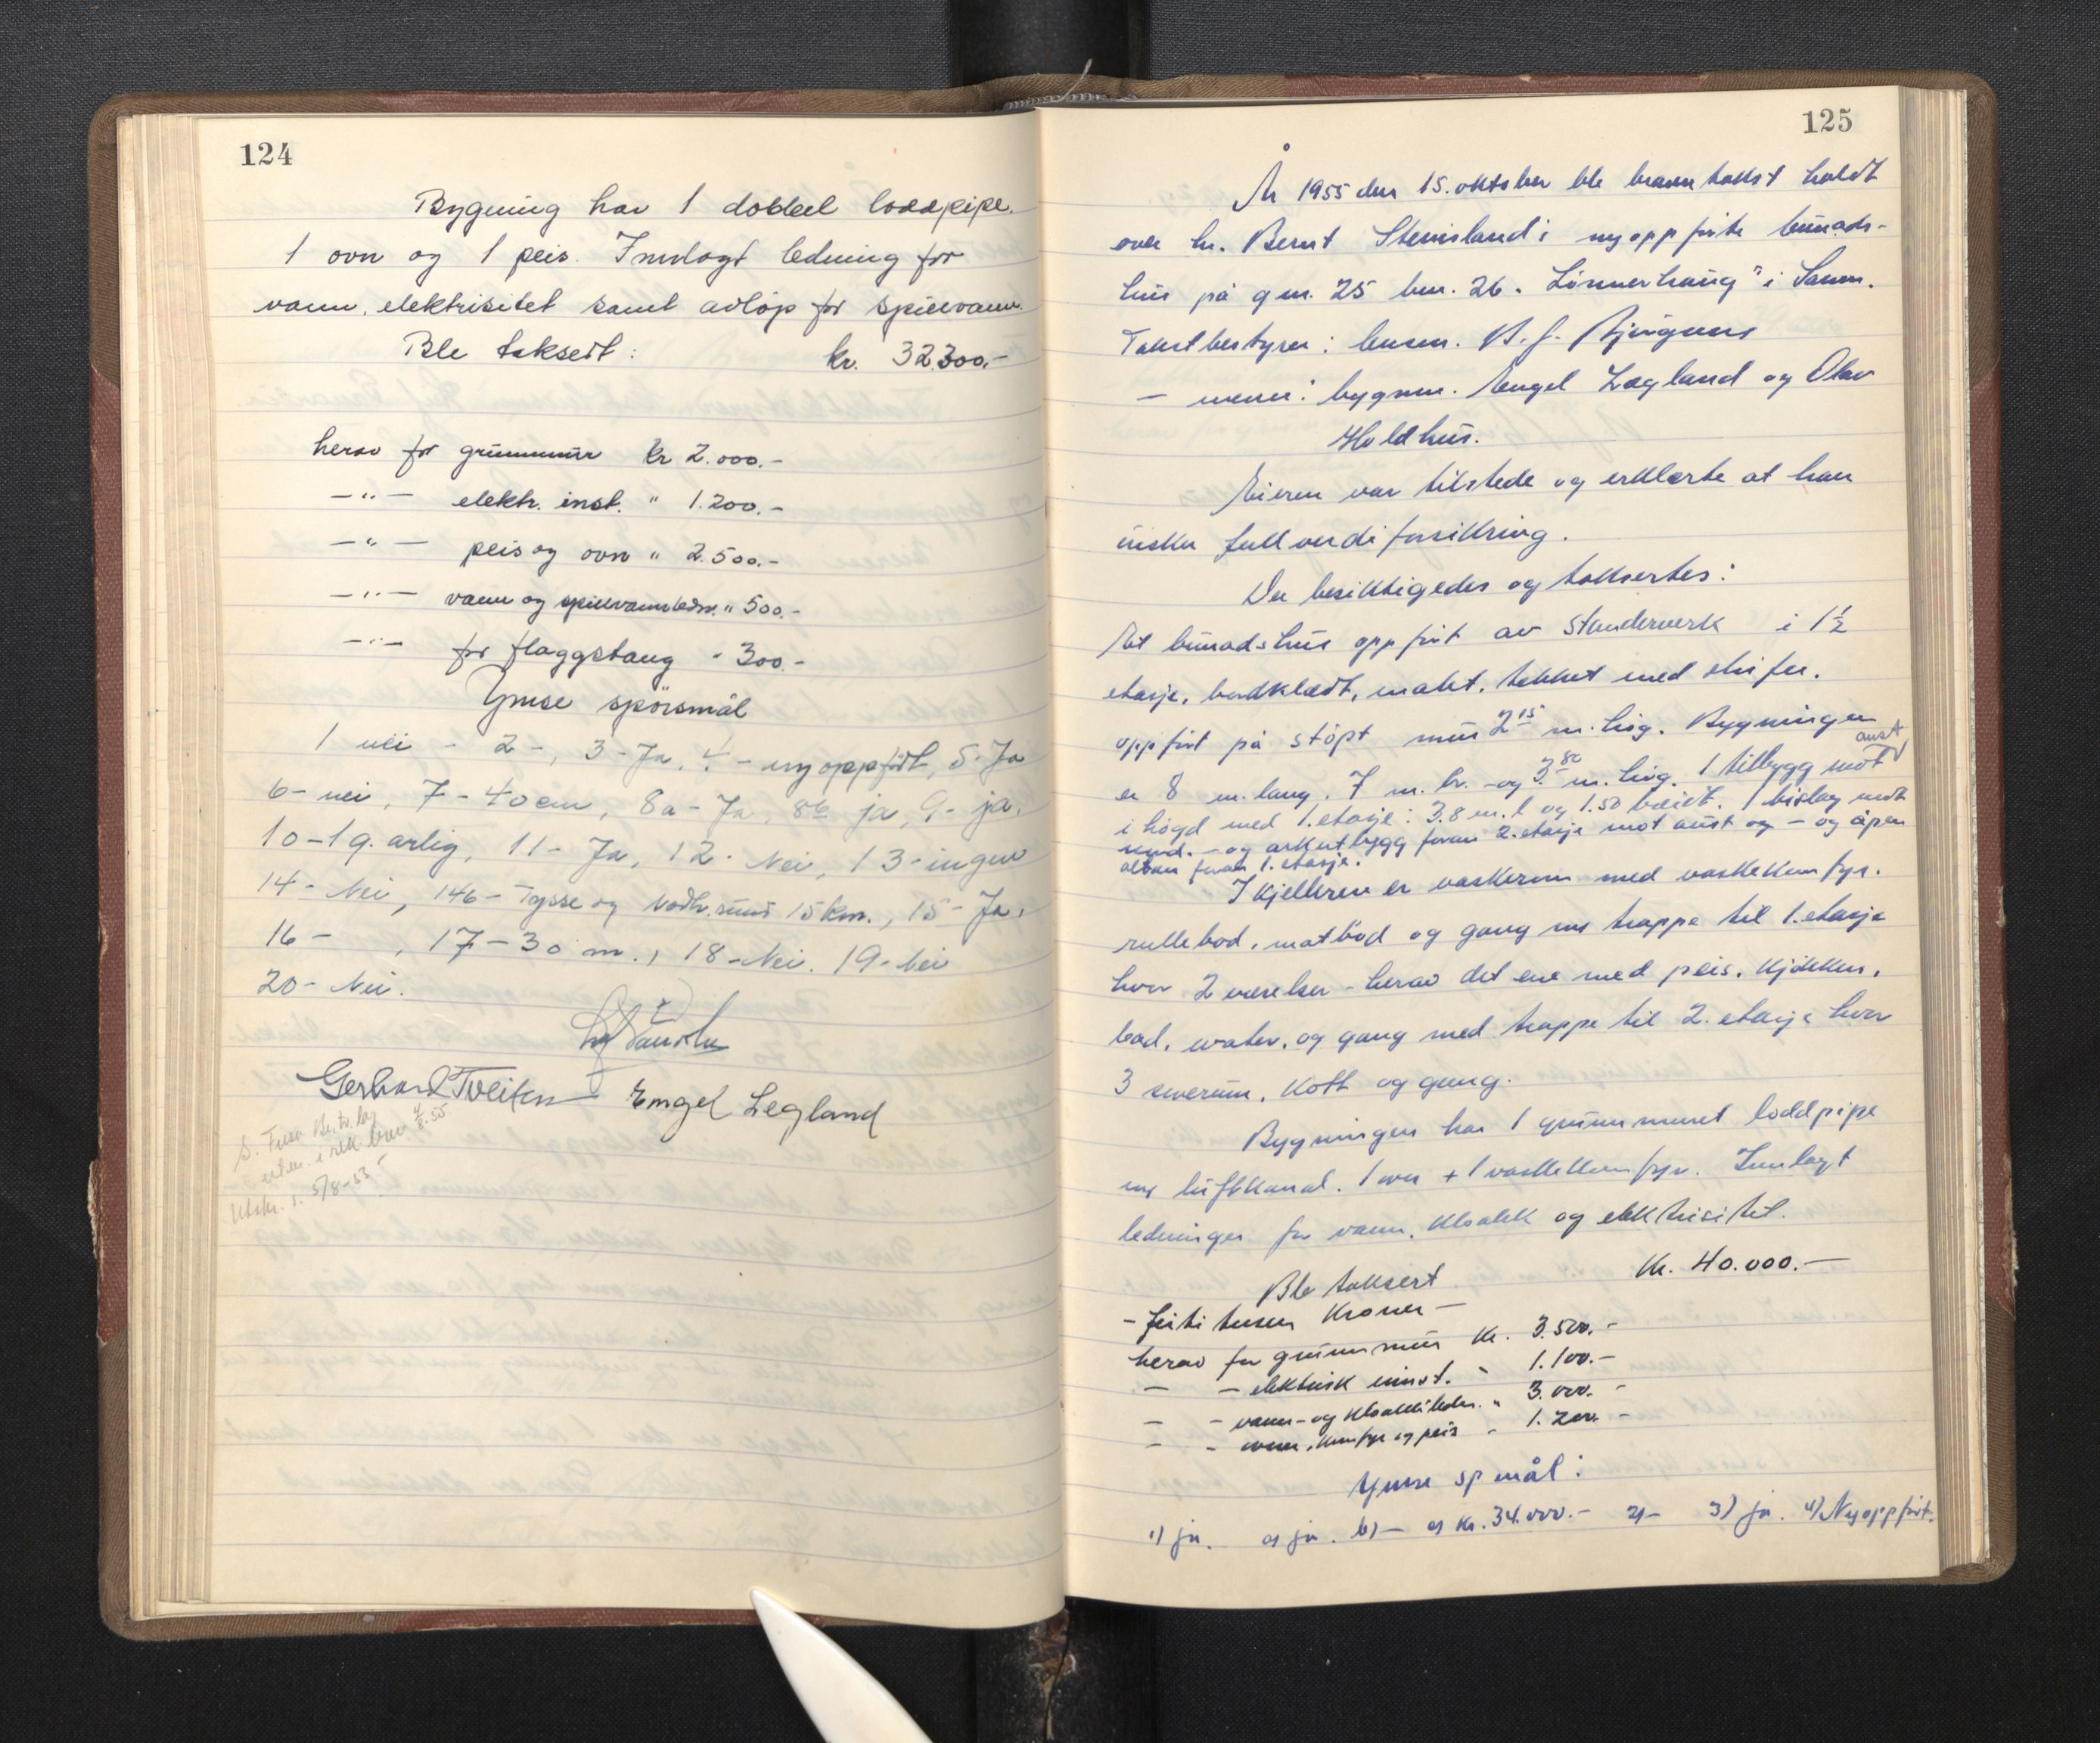 124
Bygning har 1 dobbel loddpipe.
1 ovn og 1 peis. Innlagt ledning for
vann, elektrisitet samt avløp for spillvann.
Ble taksert: kr. 32.300.-
herav for grunnmur kr 2.000.-
-"- elektr. inst. " 1.200.-
-"- peis og ovn " 2.500.-
-"- vann og spillvannledn. " 500.-
-"- for flaggstang " 300.-
Ymse spørsmål
1 nei - 2 -, 3 - Ja, 4 - nyoppført, 5 - Ja
6 - nei, 7 - 40 cm, 8a - Ja, 8b ja, 9 - ja,
10 - 1 g. årlig, 11 - Ja, 12 - Nei, 13 - ingen
14 - Nei, 14b - Tysse og 15 km., 15 - Ja,
16 - , 17 - 30 m., 18 - Nei. 19 - Nei
20 - Nei.
Gerhard Tveiten Engel Legland
Utskr. s. 5/8-53
125
År 1955 den 15. oktober ble branntakst holdt
over hr. Bernt Steinsland i nyoppførte bunads-
hus på gnr. 25 bnr. 26 "Lønnerhaug" i Samn.
Takstbestyrer: lensm.
- menn: bygnm. Engel Lægland og Olav
Holdhus.
Eieren var tilstede og erklærte at han
ønsker fullverdiforsikring.
Der besiktigedes og taksertes:
Et bunadshus oppført av stenderverk i 1½
etasje, bordklædt, malet, tekket med skifer,
oppført på støpt mur 2.15 m. høg. Bygningen
er 8 m. lang, 7 m. br. - og 3.80 m. høg. 1 tilbygg mot aust
i høgd med 1. etasje: 3.8 m. l og 1.50 breidt. 1 bislag mot
nord. - og arkutbygg foran 2. etasje mot aust og - og åpen
altan foran 1. etasje.
I kjelleren er vaskerum med vaskekomfyr,
rullebod, matbod og gang m/ trappe til 1. etasje
hvor 2 værelser - herav det ene med peis, kjøkken,
bad, water, og gang med trappe til 2. etasje hvor
3 soverum, kott og gang.
Bygningen har 1 grunnmuret loddpipe
m/ luftkanal. 1 ovn + 1 vaskekomfyr. Innlagt
ledninger for vann, kloakk og elektrisitet.
Ble taksert Kr. 40.000.-
- førti tusen kroner -
herav for grunnmur kr. 3.500.-
- - elektrisk innst. " 1.100.-
- - vann- og kloakkledn. " 3.000.-
- - ovner, komfyr og peis " 1.200.-
Ymse sp mål:
1) ja. a) ja. b) - c) kr. 34.000.- 2) - 3) ja. 4) Nyoppført.